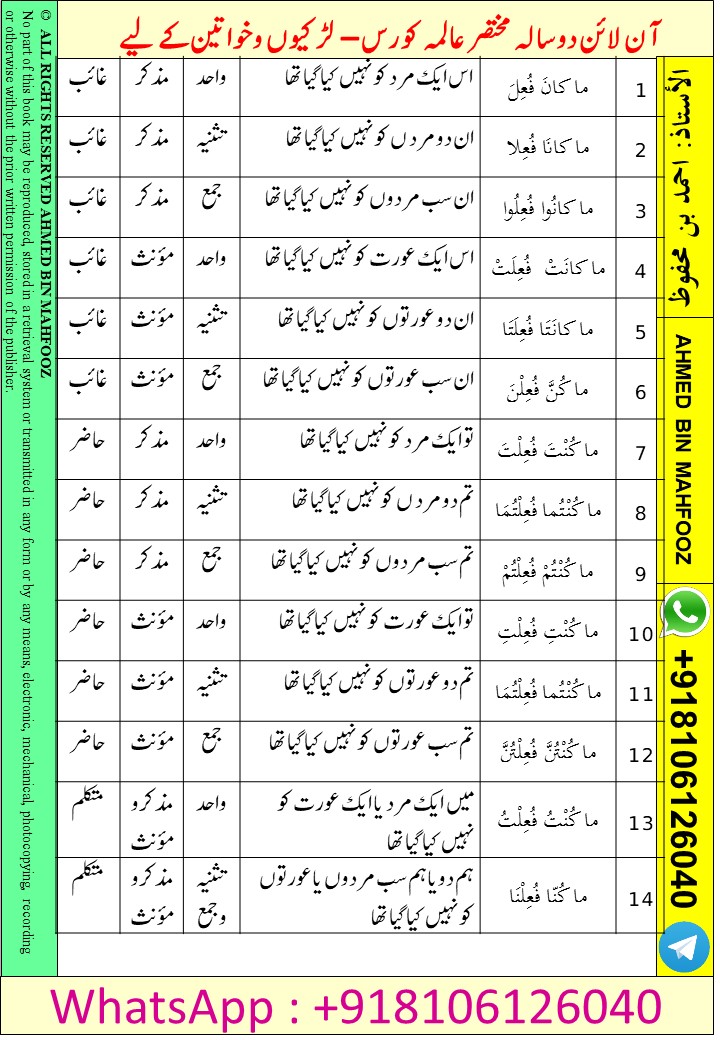 آن لائن دو سالہ مختصر عالمہ کورس – لڑکیوں وخواتین کے لیے
1 ما كانَ فُعِلَ اس ایک مرد کو نہیں کیا گیا تھا واحد مذکر غائب
2 ما كانَا فُعِلا ان دو مردں کو نہیں کیا گیا تھا تثنیہ مذکر غائب
3 ما كانُوا فُعِلُوا ان سب مردوں کو نہیں کیا گیا تھا جمع مذکر غائب
4 ما كانَتْ فُعِلَتْ اس ایک عورت کو نہیں کیا گیا تھا واحد مؤنث غائب
5 ما كانَتَا فُعِلَتَا ان دو عورتوں کو نہیں کیا گیا تھا تثنیہ مؤنث غائب
6 ما كُنَّ فُعِلْنَ ان سب عورتوں کو نہیں کیا گیا تھا جمع مؤنث غائب
7 ما كُنْتَ فُعِلْتَ تو ایک مرد کو نہیں کیا گیا تھا واحد مذکر حاضر
8 ما كُنْتُما فُعِلْتُمَا تم دو مردں کو نہیں کیا گیا تھا تثنیہ مذکر حاضر
9 ما كُنْتُمْ فُعِلْتُمْ تم سب مردوں کو نہیں کیا گیا تھا جمع مذکر حاضر
10 ما كُنْتِ فُعِلْتِ تو ایک عورت کو نہیں کیا گیا تھا واحد مؤنث حاضر
11 ما كُنْتُما فُعِلْتُمَا تم دو عورتوں کو نہیں کیا گیا تھا تثنیہ مؤنث حاضر
12 ما كُنْتُنَّ فُعِلْتُنَّ تم سب عورتوں کو نہیں کیا گیا تھا جمع مؤنث حاضر
13 ما كُنْتُ فُعِلْتُ میں ایک مرد یا ایک عورت کو واحد مذکر و متکلم
نہیں کیا گیا تھا مؤنث
14 ما كُنّا فُعِلْنَا ہم دو یا ہم سب مردوں یا عورتوں تثنیہ مذکر و متکلم
کو نہیں کیا گیا تھا وجمع مؤنث
الأستاذ: احمد بن محفوظ
AHMED BIN MAHFOOZ
+918106126040
© ALL RIGHTS RESERVED AHMED BIN MAHFOOZ
No part of this book may be reproduced, stored in a retrieval system or transmitted in any form or by any means, electronic, mechanical, photocopying, recording
or otherwise without the prior written permission of the publisher.
WhatsApp : +918106126040